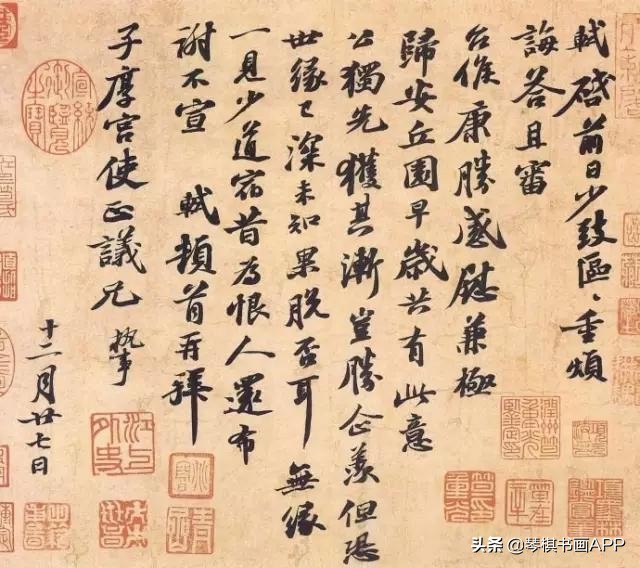 軾啓前日少致區〻重煩
誨答且審
台候康勝感慰兼極
歸安丘園早歲共有此意
公獨先獲其漸豈勝企羨但恐
世緣已深未知果脫否耳無緣
一見少道宿昔為恨人還布
謝不宣 軾頓首再拜
子厚宮使正議兄 執事
十二月廿七日
宣統御覽之寶
江上外史
头条 @琴棋书画APP